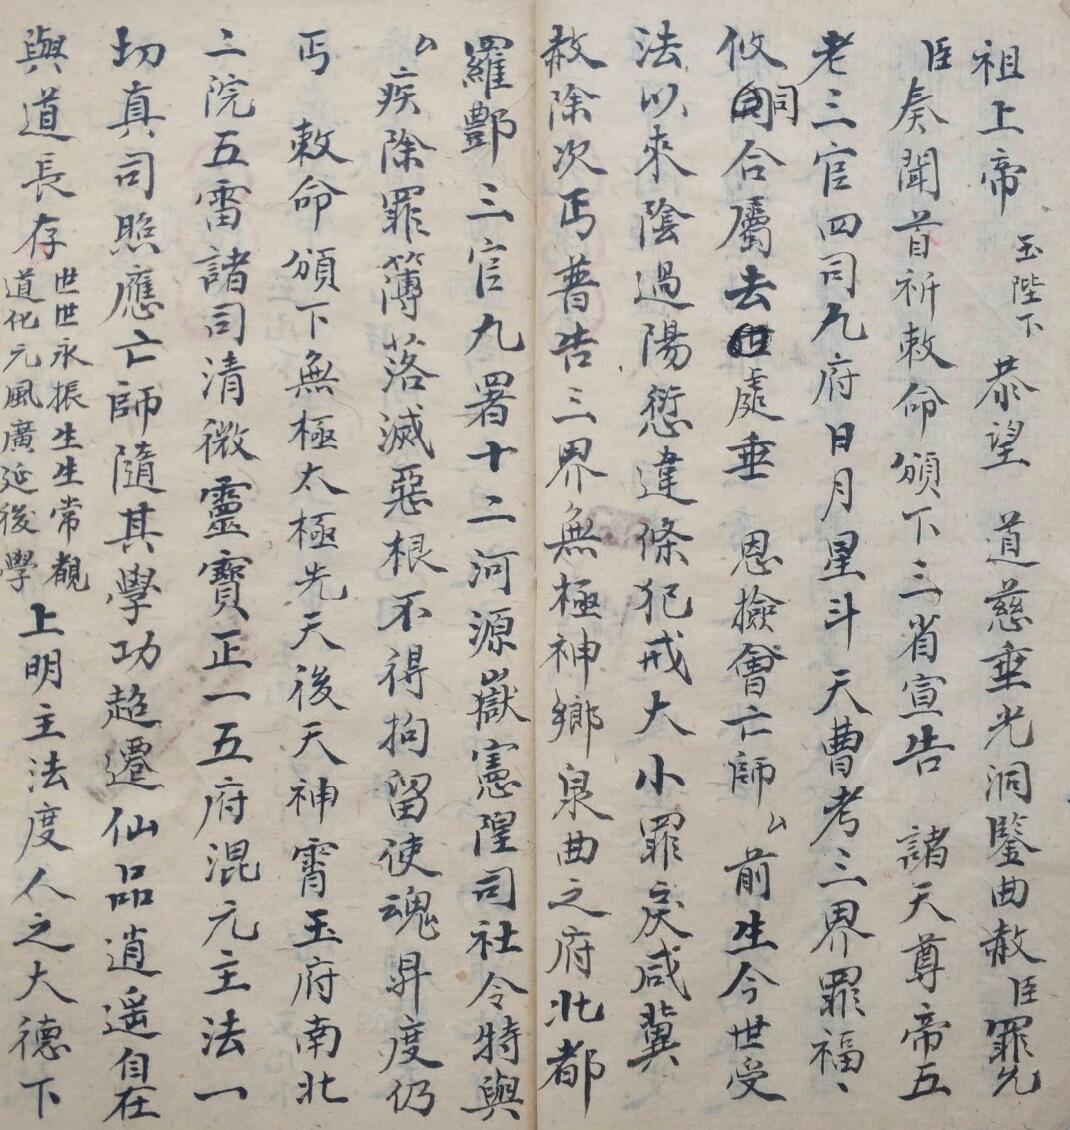 祖上帝 玉陛下 恭望 道慈垂光洞鑒曲赦臣罪先
臣奏聞首祈敕命頒下三省宣告 諸天尊帝五
老三官四司九府日月星斗天曹考三界罪福
攸同合屬去處垂 恩檢會亡師厶前生今世受
法以來陰過陽愆違條犯戒大小罪戾咸冀
赦除次丐普告三界無極神鄉泉曲之府北都
羅酆 三官九署十二河源嶽憲隍司社令特與
厶疾除罪簿落滅惡根不得拘留使魂昇度仍
丐 敕命頒下無極太極先天後天神霄玉府南北
二院五雷諸司清微靈寶正一五府混元主法一
切真司照應亡師隨其學功超遷仙品逍遥自在
與道長存世世永振生生常觀道化元風廣延後學上明主法度人之大德下